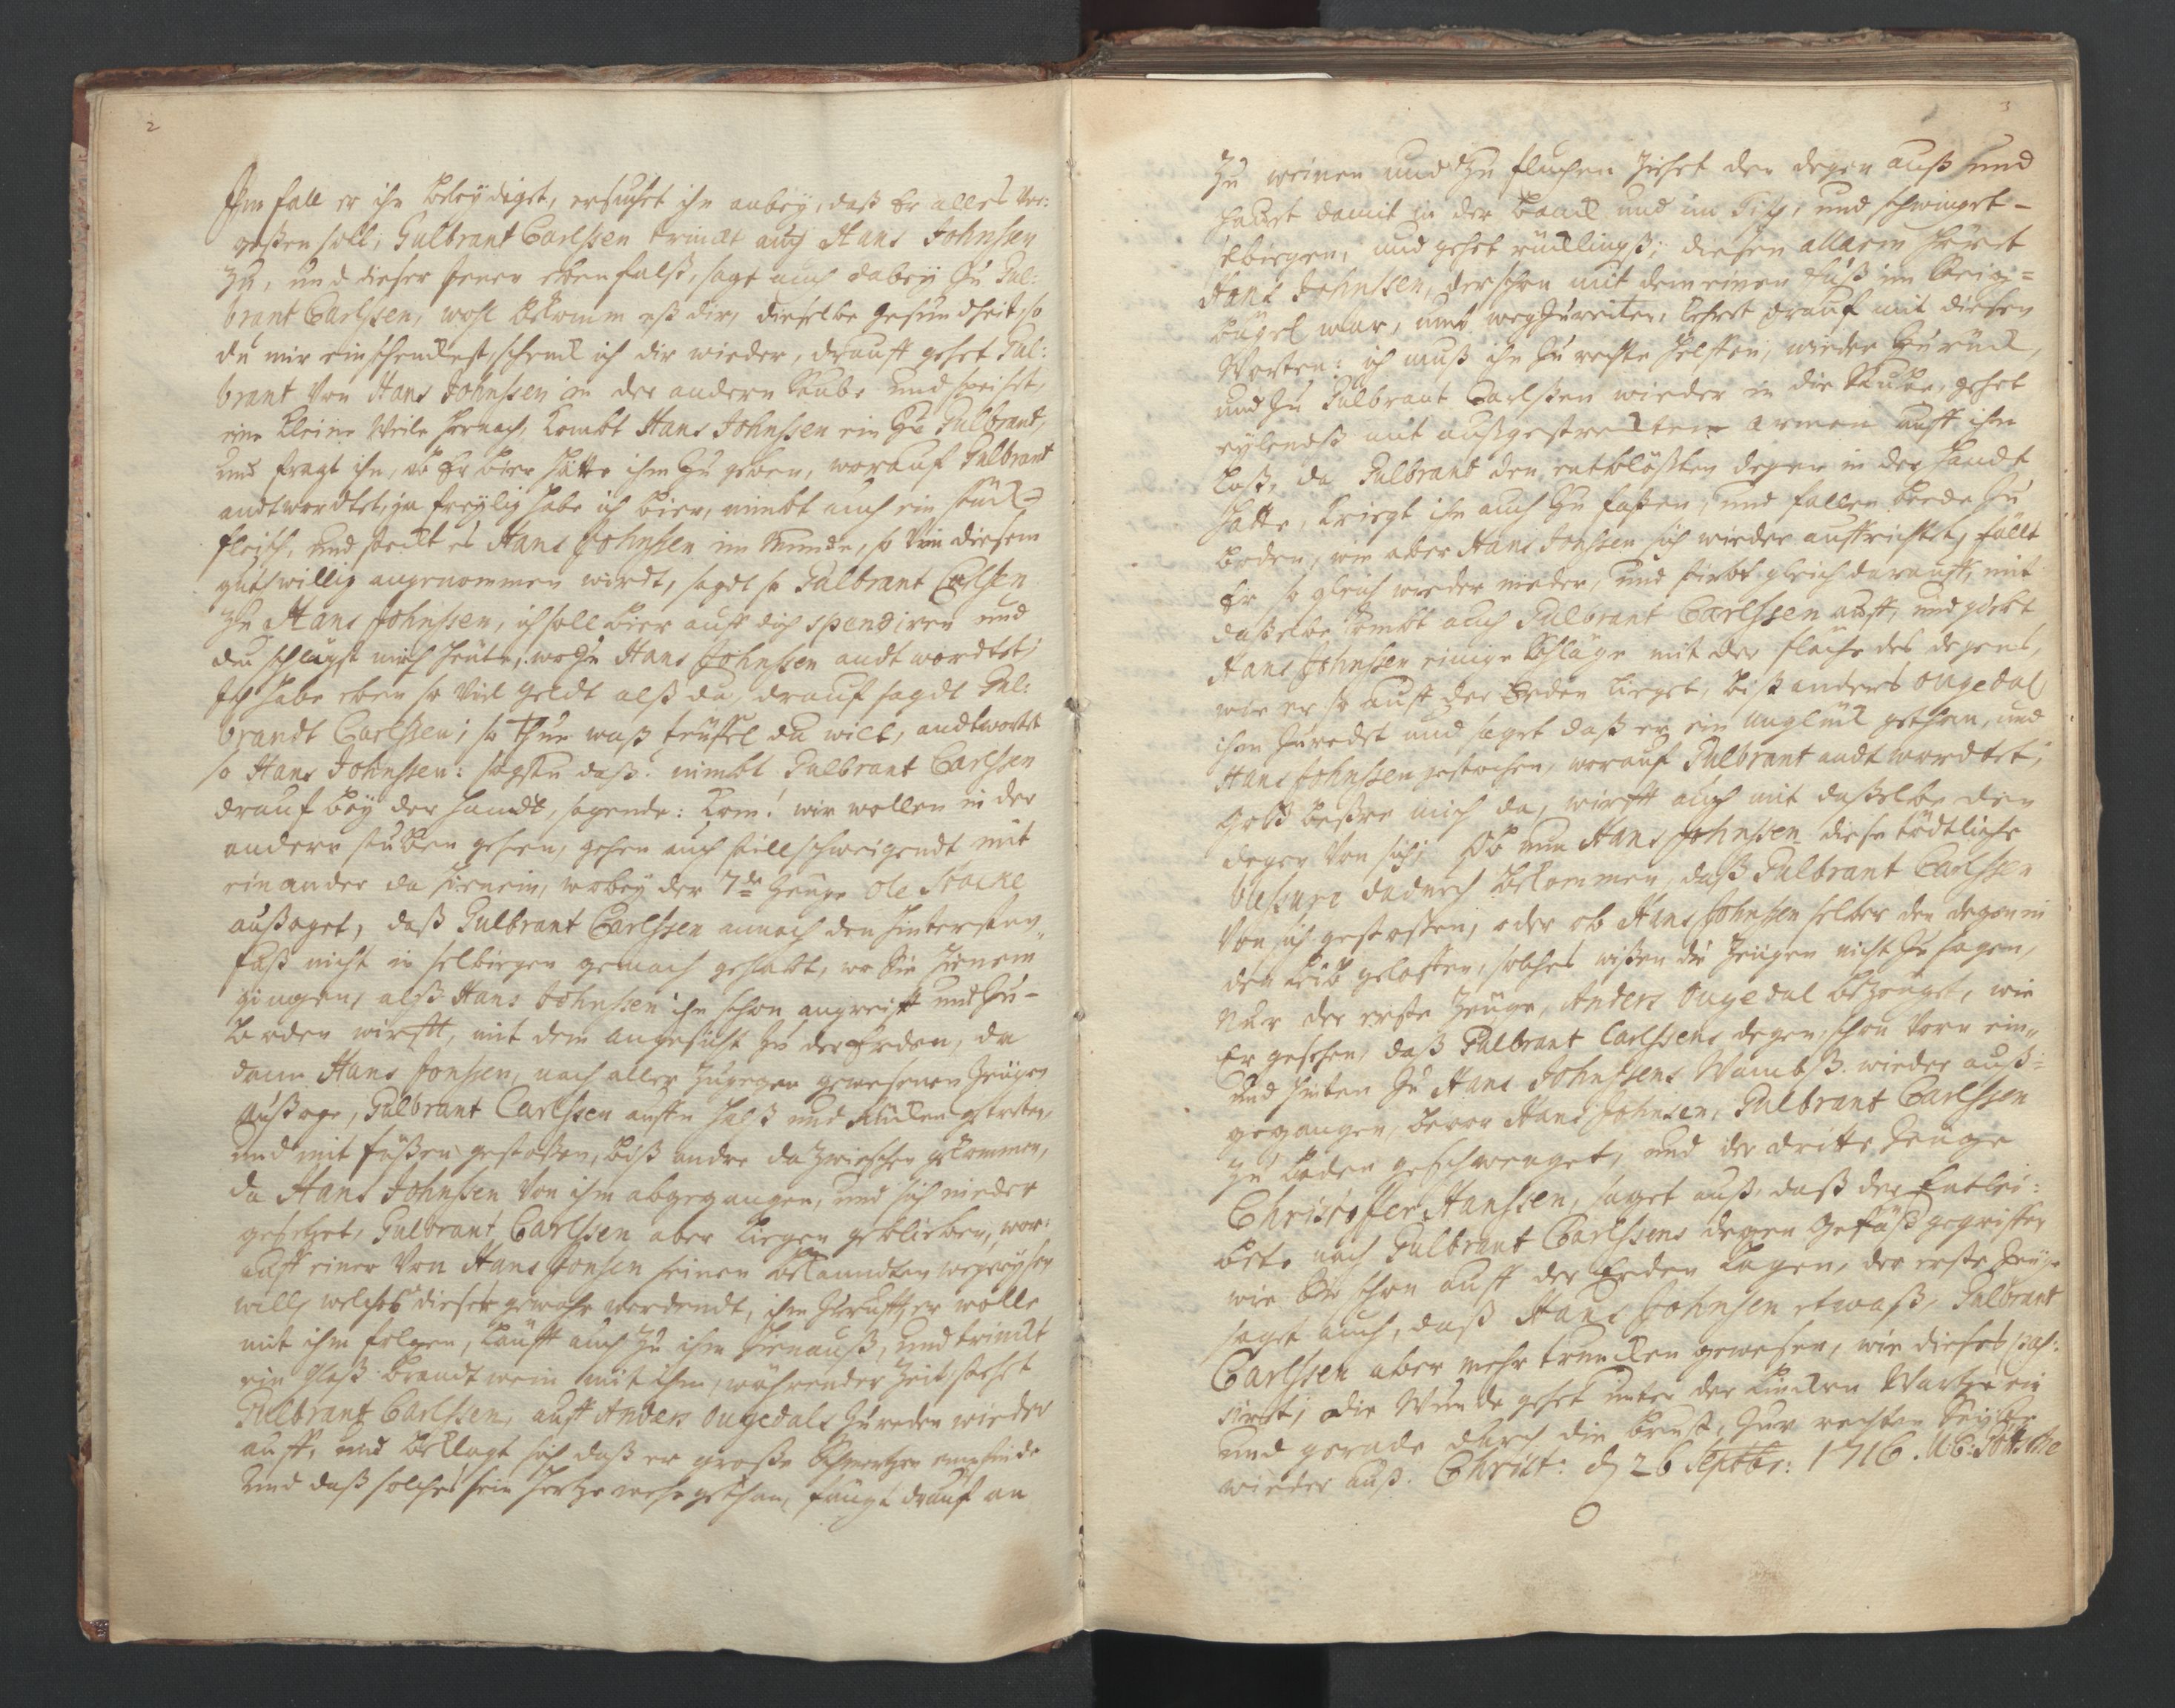 2
Im fall er ihn beleydiget, ersuchet ihn anbey, daß Er alles ver:
geßen soll, Gulbrant Carlssen trinckt auch Hans Johnsen
zu, und dieser jener ebenfalß, sagt auch dabey zu Gul:
brant Carlssen, wohl bekomm eß dir, dieselbe gesundheit, so
du mir einschenckest, schenck ich dir wieder, drauff gehet Gul:
brant von Hans Johnssen in der andern Stube und speiset,
eine kleine Weile hernach, kombt Hans Johnssen ein zu Gulbrant,
und fragt ihn, ob Er bier hätte ihm zu geben, worauf Gulbrant
andtwordtet, ja freylig habe ich bier, nimbt auch ein stück
fleisch, und steckt es Hans Johnssen im Munde, so von diesem
guthwillig angenommen wirdt, sagdt so Gulbrant Carlsen
zu Hans Johnssen, ich soll bier auff dich spendiren und
du schlägst mich heute, wozu Hans Johnssen andtwordtet;
Ich habe eben so viel geldt alß du, drauf sagdt Gul:
brandt Carlssen; so thue waß teuffel du wilt, andtwortet
so Hans Johnssen: sagstu daß: nimbt Gulbrant Carlssen
drauf bey der handt, sagende: kom! wir wollen in der
andern stuben gehen, gehen auch stillschweigendt mit
einander da hienein, wobey der 7de Zeuge Ole Stocke
außaget, daß Gulbrant Carlssen annoch den hintersten
fuß nicht in selbiegen gemach gehabt, wo Sie hienein
giengen, alß Hans Johnssen ihn schon angreifft und zu-
boden wirfft, mit dem angesicht zu der Erden, da
dann Hans Jonssen, nach aller zugegen gewesenen Zeugen
Außage, Gulbrant Carlssen auffn halß und Rücken getreten,
und mit füßen gestoßen, biß andre dazwischen gekommen,
da Hans Johnssen von ihm abgegangen, und sich nieder
gesetzet, Gulbrant Carlssen aber liegen geblieben, wor:
auff einer von Hans Jonsen seinen bekanndten wegreysen
will, welches dieser gewahr werdendt, ihm zurufft, er wolle
mit ihm folgen, läufft auch zu ihm hienauß, und trinckt
ein glaß brandtwein mit ihm, währender Zeit stehet
Gulbrant Carlssen, auff Anders Ougedals zureden wieder
auff, und beklagt sich daß er große Schmertzen empfinde
und daß solches sein hertze wehe gethan, fängt drauf an
3
Zu weinen und zu fluchen ziehet den degen auß und
hauet damit in der banck und im Tisch, und schwinget-
selbiegen, und gehet rücklingß; diesen allarm höret
Hans Johnssen, der schon mit dem einen Fuß im Steig=
bügel war, umb wegzureiten, kehret drauf mit diesen
Worten: ich muß ihn zu rechte helffen, wieder zurück,
und zu Gulbrant Carlssen wieder in die Stube, gehet
eylendß mit außgestreckten armen auff ihm
loß, da Gulbrant den entblößten degen in der handt
hatte, kriegt ihn auch zu faßen, und fallen beede zu
boden, wie aber Hans Jonssen sich wieder auffrichtet, fällt
Er so gleich wieder nieder, und stirbt gleich darauff, mit
daßelbe kombt auch Gulbrant Carlssen auff, und giebt
Hans Johnssen einige Schläge mit der flache des degens,
wie er so auff der Erden lieget, biß anders Ougedal
ihm zuredet und saget daß er ein unglück gethan, und
Hans Johnssen gestochen, worauf Gulbrant andtwordtet;
Gott beßre mich da, wirfft auch mit daßelbe den
degen von sich; Ob nun Hans Johnssen diese tödtliche
blessure dadurch bekommen, daß Gulbrant Carlssen
von sich gestoßen, oder ob Hans Johnssen selber den degen in
den leib geloffen, solches wißen die Zeugen nicht zu sagen,
Nur der erste Zeuge, Anders Ougedal bezeuget, wie
Er gesehen, daß Gulbrant Carlssens degen, schon vorn ein-
und hinten zu Hans Johnssens Wambß wieder auß-
gegangen, bevor Hans Johnsen, Gulbrant Carlssen
zu boden geschwenget, und der dritte Zeuge
Christoffer Hanssen, saget auß, daß der Entlei:
bete nach Gulbrant Carlssens degen Gefäß gegriffen
wie Sie schon auff der Erden lagen, der erste Zeuge
saget auch, daß Hans Johnsen etwaß, Gulbrant
Carlssen aber mehr truncken gewesen, wie dieses pas:
sirt; die Wunde gehet unter der lincken Wartze ein
und gerade durch die brust, zur rechten Seyten
wieder auß. Christ: d 26 Septbr: 1716. M:C: